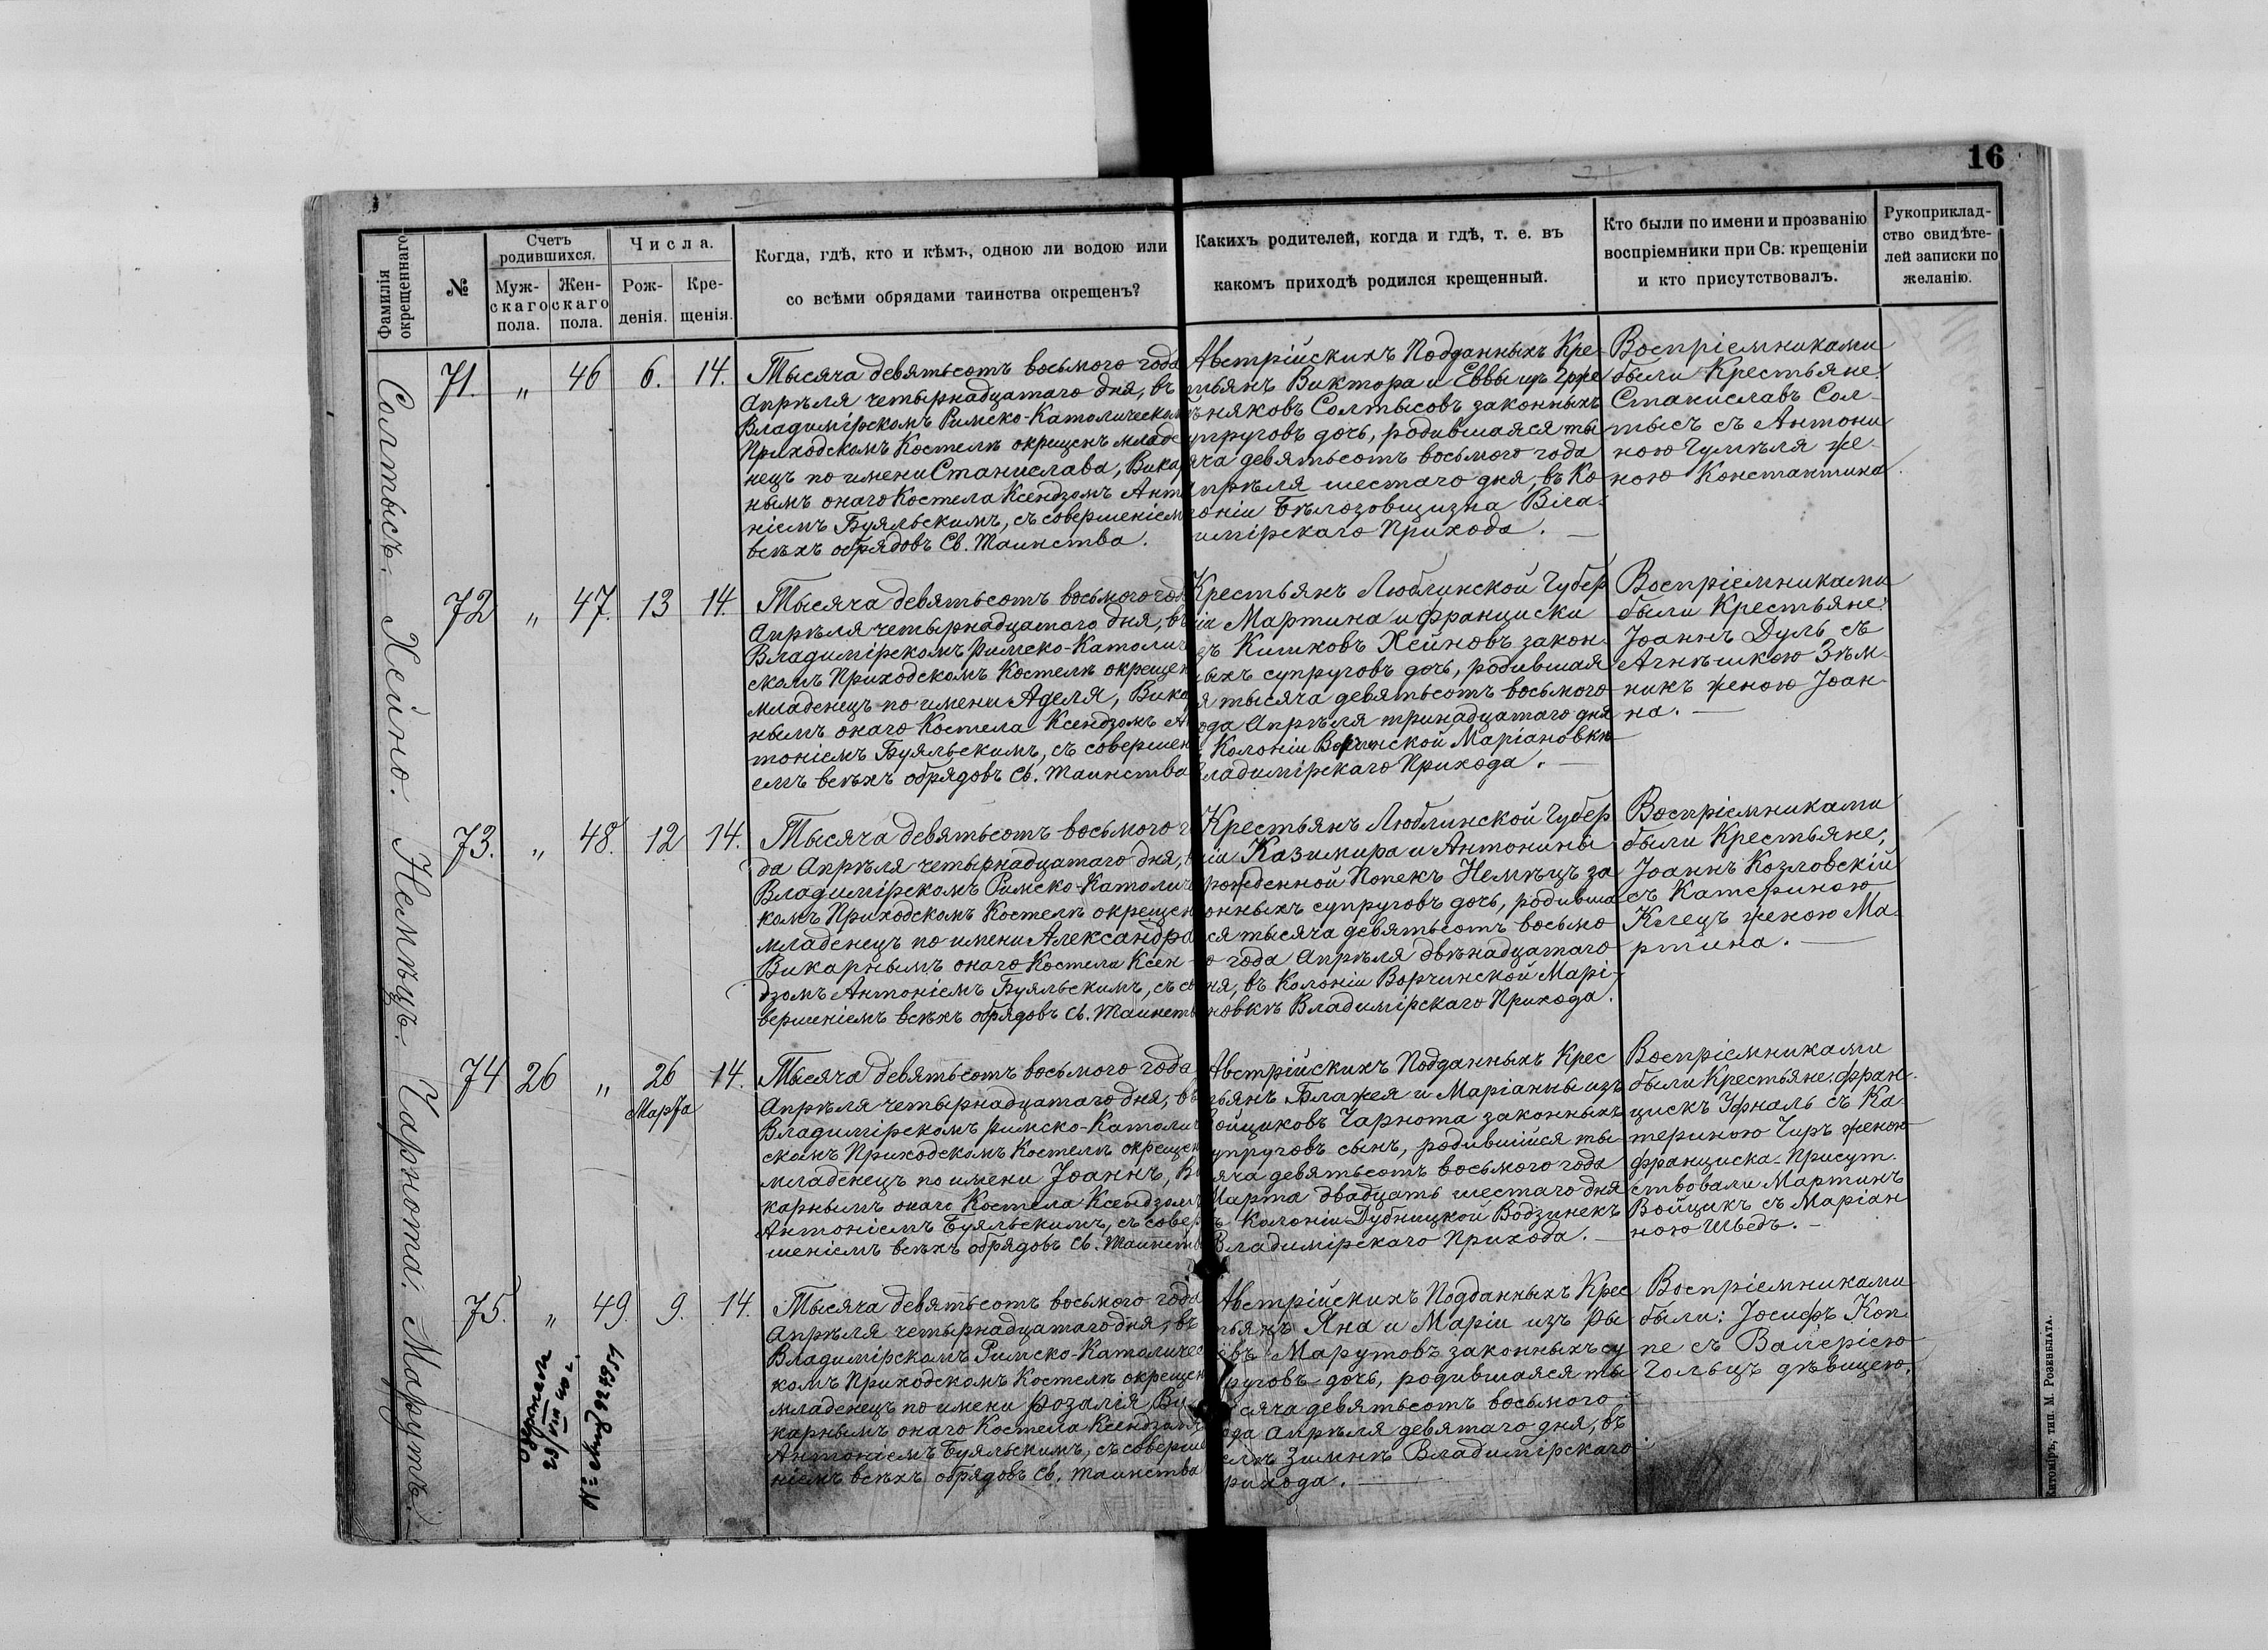 16
Фамилія окрещеннаго.
№
Счетъ родившихся.
Мужскаго пола.
Женскаго пола.
Числа.
Рожденія.
Крещенія.
Когда, гдѣ, кто и кѣмъ, одною ли водою или
со всѣми обрядами таинства окрещенъ?
Какихъ родителей, когда и гдѣ, т. е. въ
какомъ приходѣ родился крещенный.
Кто были по имени и прозванію
воспріемники при Св. крещеніи
и кто присутствовалъ.
Рукоприклад-
ство свидѣте-
лей записки по
желанію.
Солтысъ.
71. „ 46 6. 14.
Тысяча девятьсотъ восьмого года
Апрѣля четырнадцатаго дня, въ
Владимірскомъ Римско-Католическом
Приходскомъ Костелѣ окрещенъ младе
нецъ по имени Станислава, Викар
нымъ онаго Костела Ксендзомъ Анто
ніемъ Буяльскимъ, съ совершеніем
всѣхъ обрядовъ Св. Таинства.
Австрійскихъ Подданныхъ Кре-
тьянъ Виктора и Еввы изъ Грже
няковъ Солтысовъ законныхъ
упруговъ дочь, родившаяся ты
яча девятьсотъ восьмого года
прѣля шестаго дня, въ Ко
оніи Бѣлозовщизна Вла-
имірскаго Прихода.
Воспріемниками
были Крестьяне:
Станиславъ Сол-
тысъ съ Антони
ною Гумѣля же-
ною Константина
Хейно.
72 „ 47. 13 14.
Тысяча девятьсотъ восьмого год
Апрѣля четырнадцатаго дня, въ
Владимірскомъ Римско-Католич
скомъ Приходскомъ Костелѣ окрещен
младенецъ по имени Аделя, Вика
нымъ онаго Костела Ксендзомъ Ан
тоніемъ Буяльскимъ, съ совершен
емъ всѣхъ обрядовъ Св. Таинства
Крестьянъ Люблинской Губер
іи Мартина и Франциски
зъ Кишковъ Хейновъ закон-
ыхъ супруговъ дочь, родившая
я тысяча девятьсотъ восьмого
ода Апрѣля тринадцатаго дня
Колоніи Ворчинской Маріановкѣ
Владимірскаго Прихода.
Воспріемниками
были Крестьяне:
Іоаннъ Дуль съ
Агнѣшкою Зѣм-
никъ женою Іоан-
на.
Немѣцъ.
73. „ 48. 12 14.
Тысяча девятьсотъ восьмого г
да Апрѣля четырнадцатаго дня,
Владимірскомъ Римско-Католич
комъ Приходскомъ Костелѣ окрещен
младенецъ по имени Александра
Викарнымъ онаго Костела Ксен-
дзомъ Антоніемъ Буяльскимъ, съ со
вершеніемъ всѣхъ обрядовъ Св. Таинств
Крестьянъ Люблинской Губер
ніи Казимира и Антонины
рожденной Попекъ Немѣцъ за
онныхъ супруговъ дочь, родивша
ся тысяча девятьсотъ восьмо
о года Апрѣля двѣнадцатаго
ня, въ Колоніи Ворчинской Марі-
новкѣ Владимірскаго Прихода.
Воспріемниками
были Крестьяне:
Іоаннъ Козловскій
съ Катериною
Клецъ женою Ма-
ртина.
Чарнота.
74 26 „ 26 Марта 14.
Тысяча девятьсотъ восьмого года
Апрѣля четырнадцатаго дня, въ
Владимірскомъ Римско-Католич
скомъ Приходскомъ Костелѣ окрещен
младенецъ по имени Іоаннъ, Ви
карнымъ онаго Костела Ксендзомъ
Антоніемъ Буяльскимъ, съ совер
шеніемъ всѣхъ обрядовъ Св. Таинств
Австрійскихъ Подданныхъ Крес
тьянъ Блажея и Маріанны изъ
Войциковъ Чарнота законныхъ
упруговъ сынъ, родившійся ты-
яча девятьсотъ восьмого года
Марта двадцать шестаго дня
ъ Колоніи Дубницкой Водзинекъ
Владимірскаго Прихода.
Воспріемниками
были Крестьяне: Фран-
цискъ Уфналь съ Ка-
териною Чиръ женою
Франциска. Присут-
ствовали Мартинъ
Войцикъ съ Маріан
ною Шведъ.
Марутъ.
75. „ 49. 9. 14.
28/VIII 40 г.
Тысяча девятьсотъ восьмого года
Апрѣля четырнадцатаго дня, въ
Владимірскомъ Римско-Католичес
комъ Приходскомъ Костелѣ окрещен
младенецъ по имени Розалія, Ви
карнымъ онаго Костела Ксендзомъ
Антоніемъ Буяльскимъ, съ соверше
ніемъ всѣхъ обрядовъ Св. Таинства
Австрійскихъ Подданныхъ Крес
тьянъ Яна и Маріи изъ Ры
евъ Марутовъ законныхъ су
ругов дочь, родившаяся ты
сяча девятьсотъ восьмого
ода Апрѣля девятаго дня, въ
елѣ Зимнѣ Владимірскаго
рихода.
Воспріемниками
были: Іосифъ Коп
пе съ Валеріею
Гольцъ дѣвицею.
Житоміръ, тип. М. Розенблата.